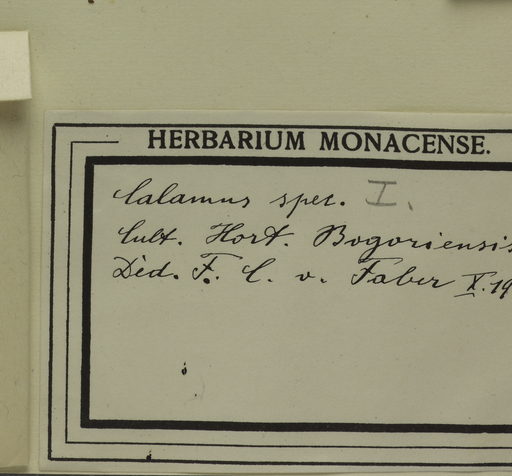 HERBARIUM MONACENSE.
Calamus spec. I.
Cult. Hort. Bogoriensis
Dèd. F. C. v. Faber X. 19